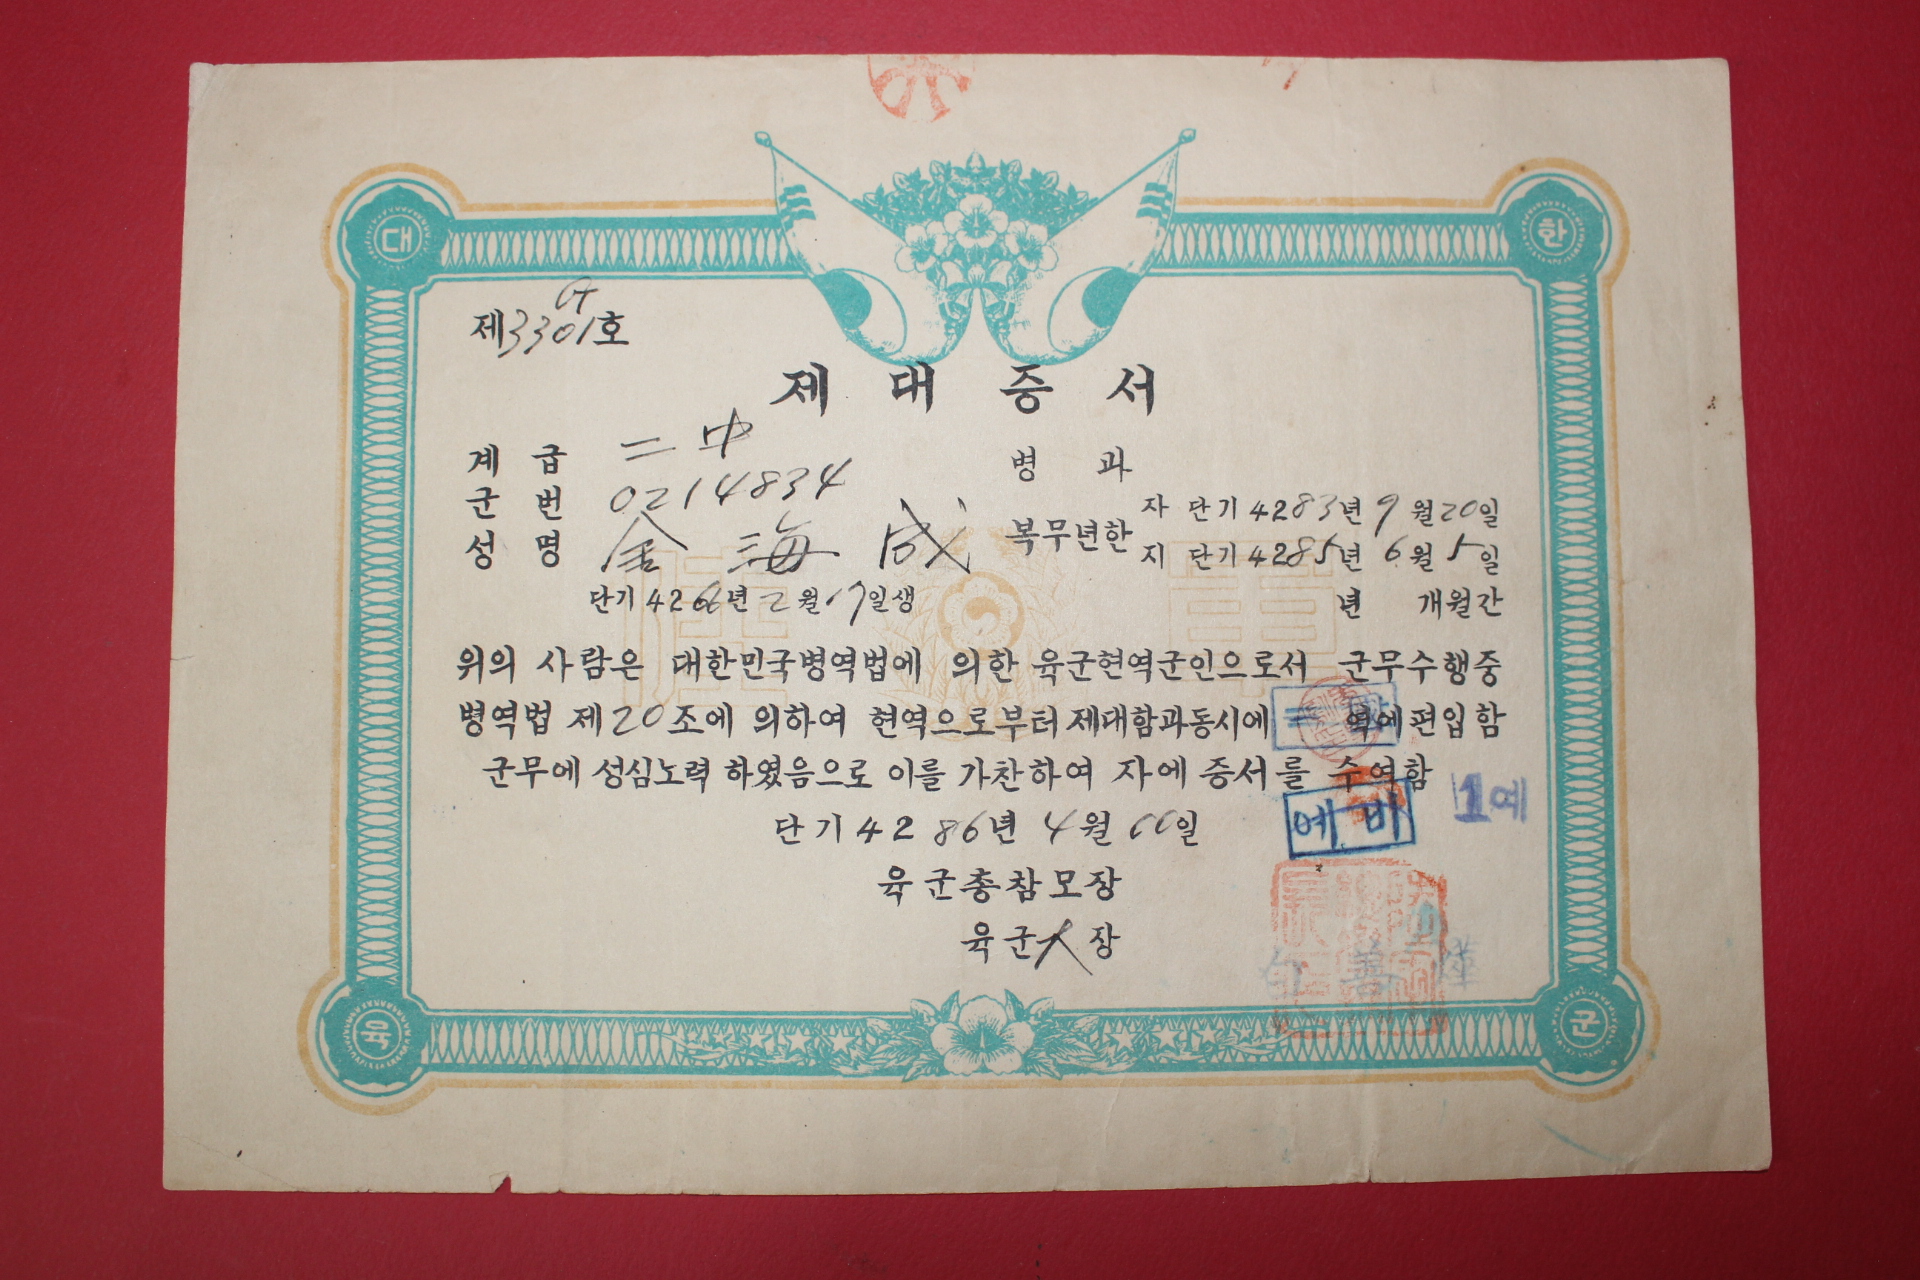 대 한
제3301호
제 대 증 서
계 급 二中
군 번 0214834
성 명 金海成
단기 4266년 2월 17일생
병 과
복무년한
자 단기 4283년 9월 20일
지 단기 4285년 6월 5일
년 개월간
위의 사람은 대한민국병역법에 의한 육군현역군인으로서 군무수행중
병역법 제20조에 의하여 현역으로부터 제대함과동시에 역에편입함
군무에 성심노력 하였음으로 이를 가찬하여 자에 증서를 수여함
예비
1예
단기 4286년 4월 일
육군총참모장
육군大장
육 군